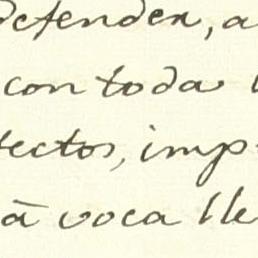 defender, a
con toda
fectos, imp
à voca lle